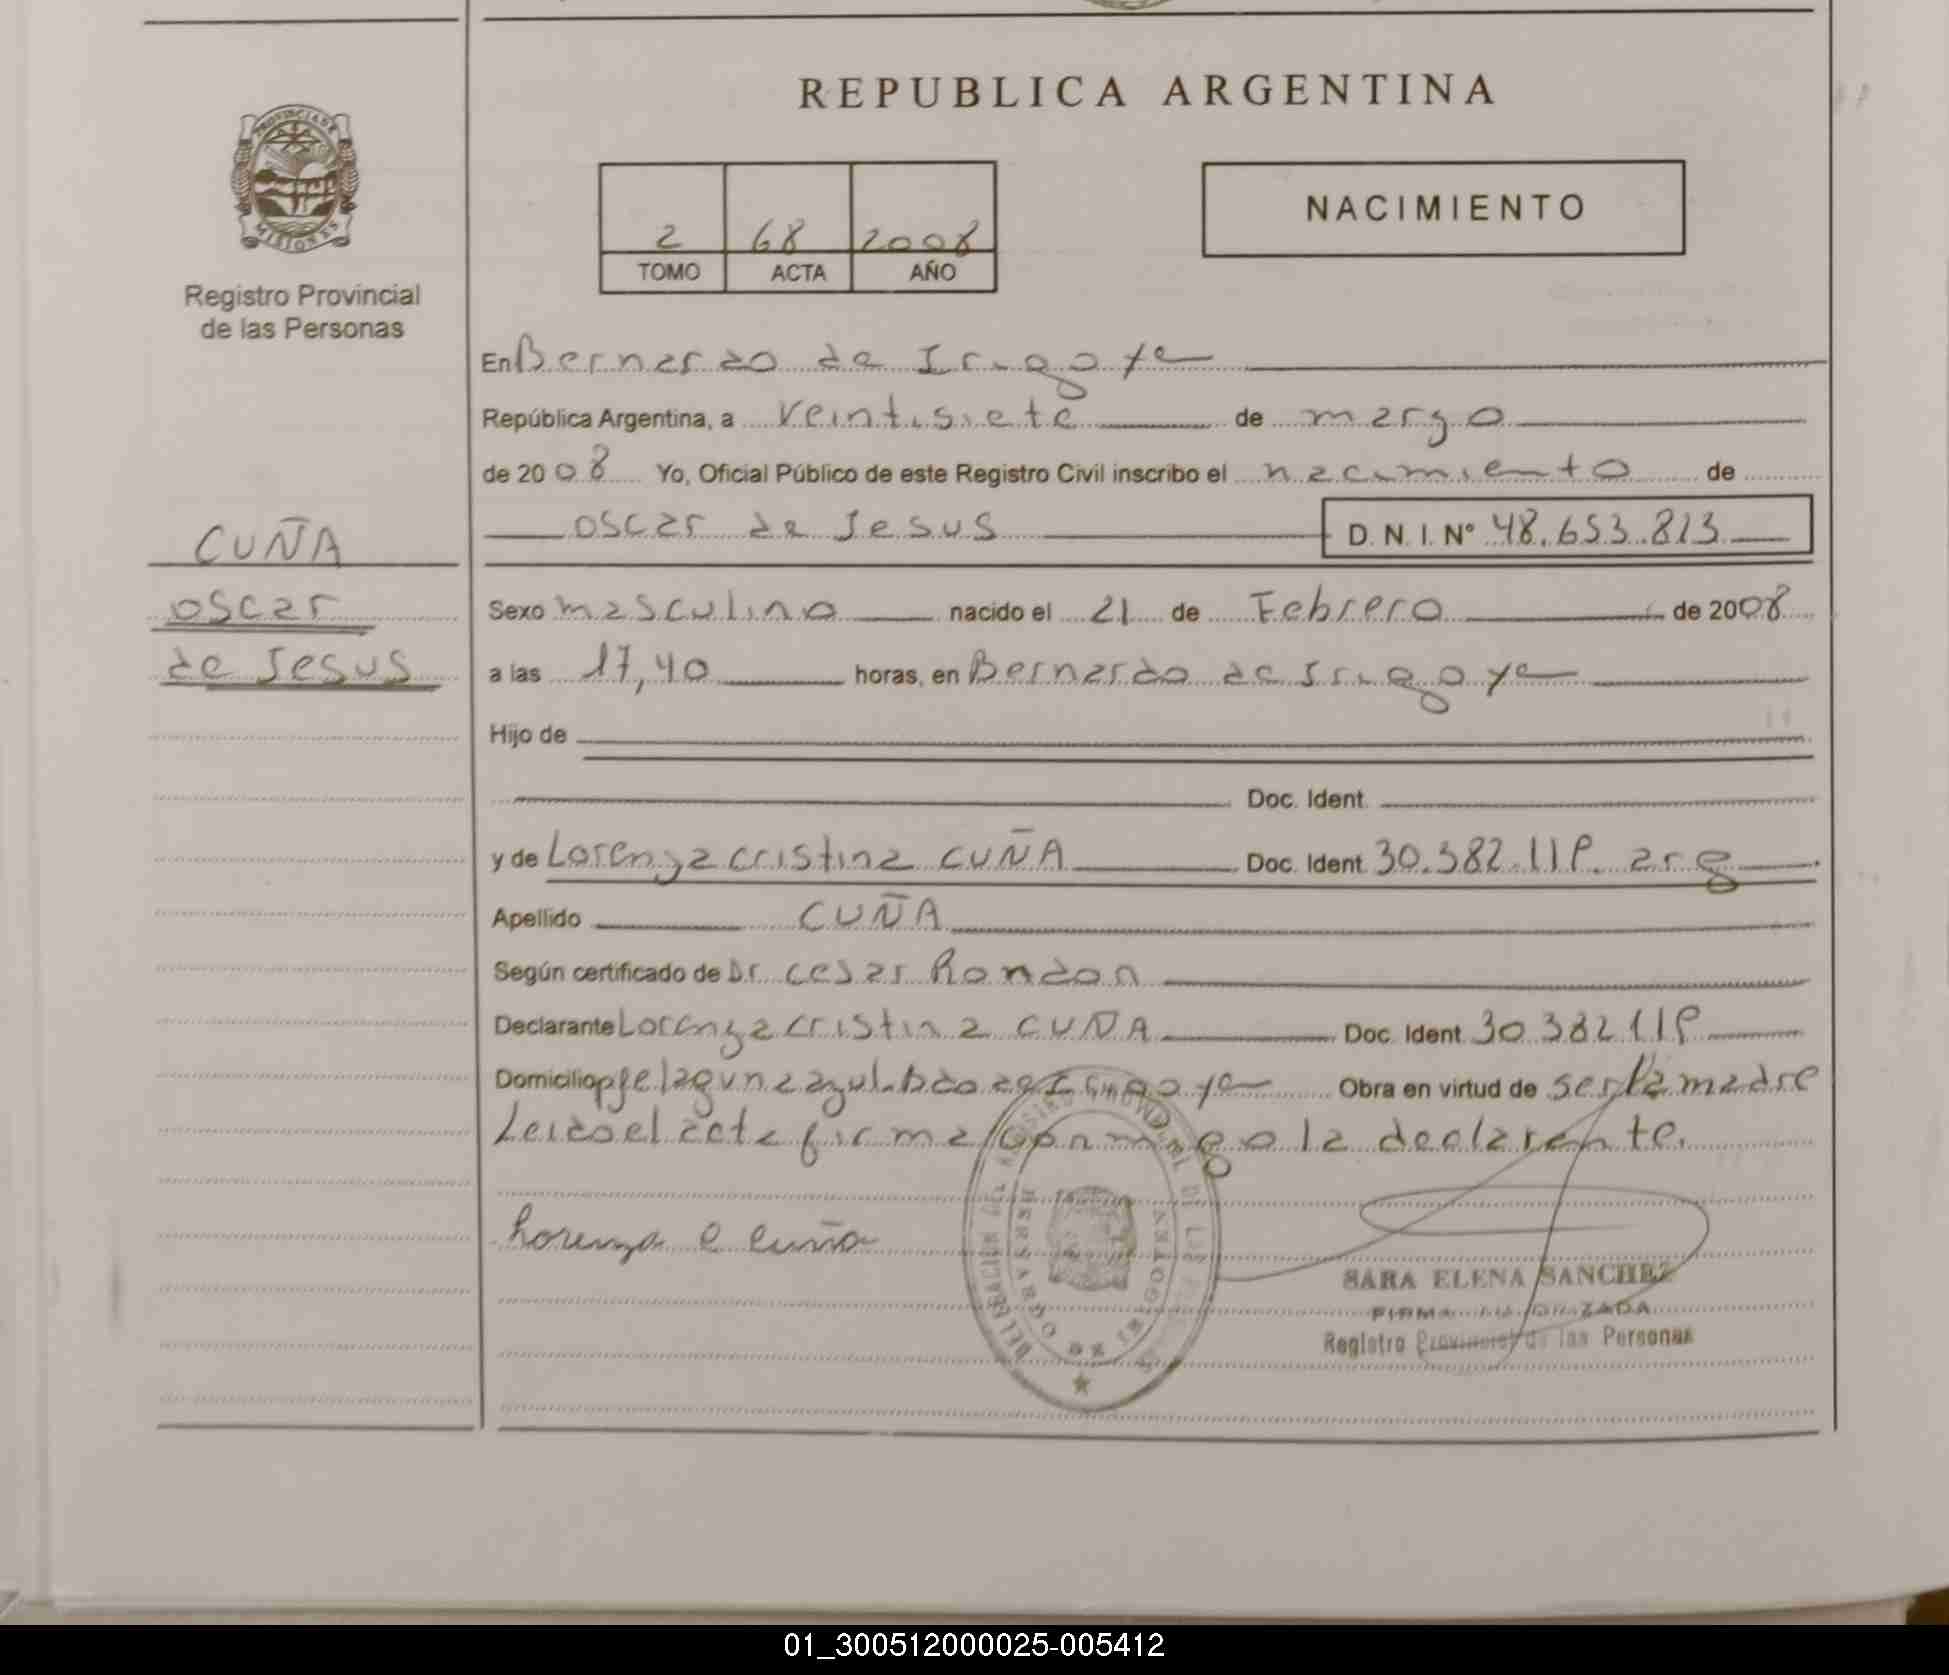 REPUBLICA ARGENTINA
PROVINCIA DE
MISIONES
Registro Provincial
de las Personas
2 68 2008
TOMO ACTA AÑO
NACIMIENTO
En Bernardo de Irigoye
República Argentina, a veintisiete de marzo
de 2008 Yo, Oficial Público de este Registro Civil inscribo el nacimiento de
oscar de Jesus D. N. I. Nº 48.653.813
CUÑA
oscar
de Jesus
Sexo masculino nacido el 21 de Febrero de 2008
a las 17,40 horas, en Bernardo de Irigoye
Hijo de
Doc. Ident.
y de Lorenza cristina CUÑA Doc. Ident. 30.382.119. arg
Apellido CUÑA
Según certificado de Dr. cesar Rondon
Declarante Lorenza cristina CUÑA Doc. Ident. 30382119
Domicilio pje laguna azul. Bdo de Irigoye Obra en virtud de ser la madre
Leido el acta firma conmigo la declarante.
Lorenza C Cuña
SARA ELENA SANCHEZ
FIRMA AUTORIZADA
Registro Provincial de las Personas
01_300512000025-005412